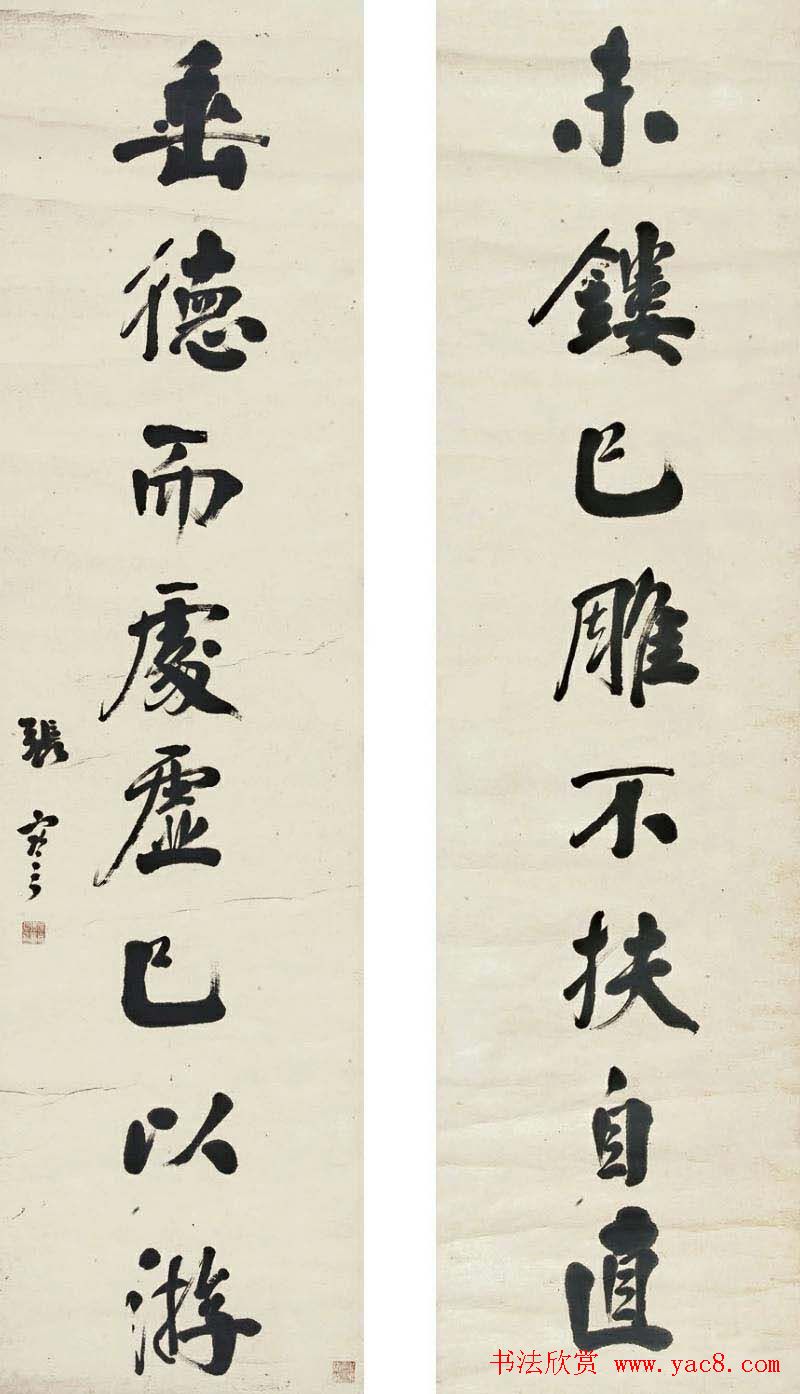 未鏤已雕不扶自直
垂德而處虛己以游
張謇
书法欣赏 www.yac8.com